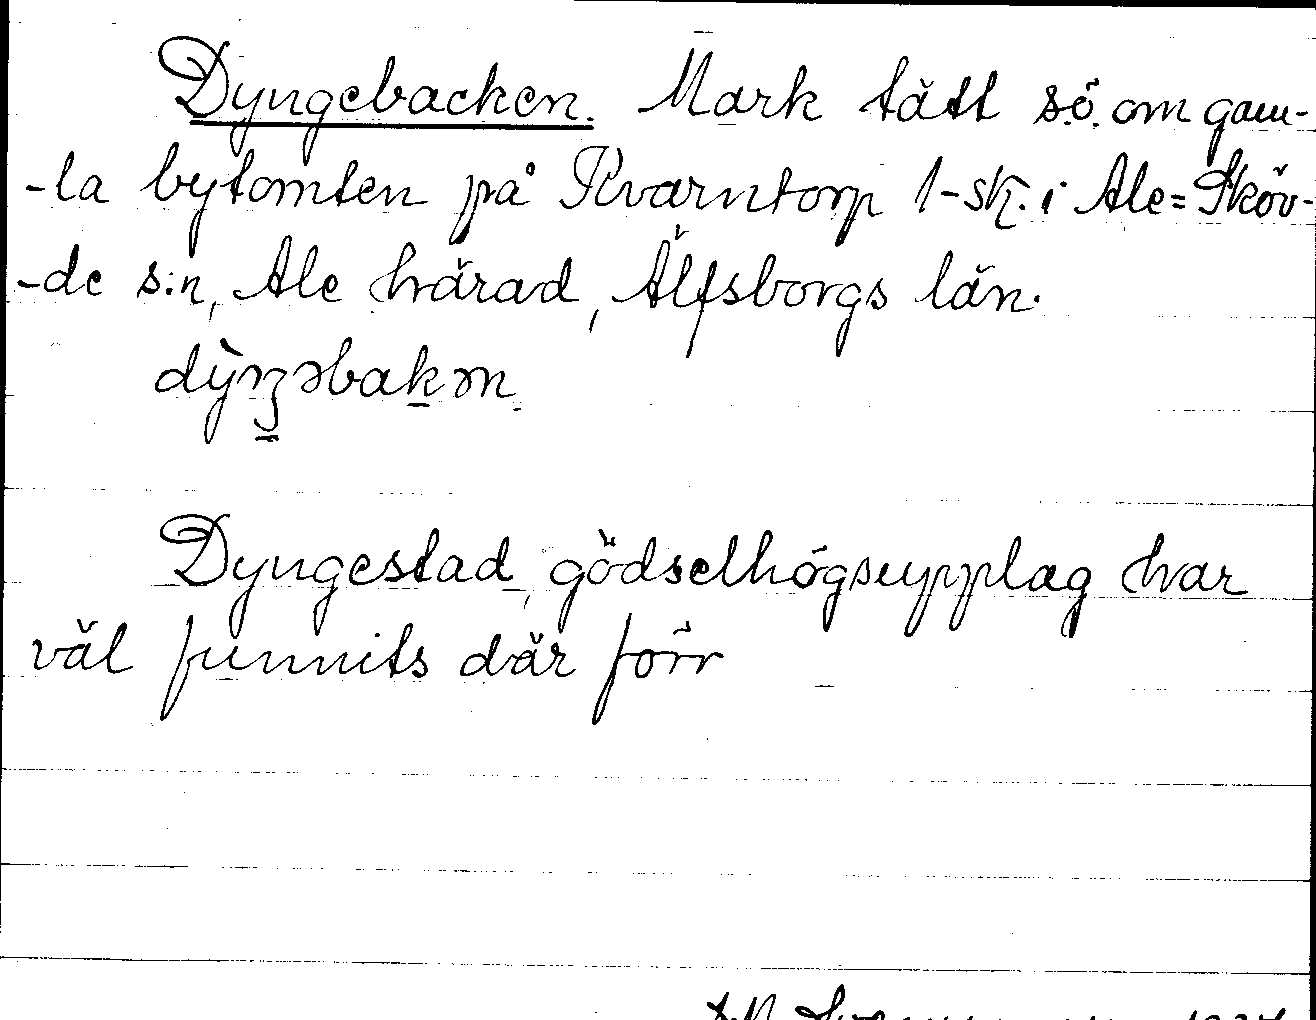 Dyngebacken. Mark tätt sö. om gam-
-la bytomten på Kvarntorp 1-sk. i Ale=Sköv-
-de s:n, Ale härad, Älfsborgs län.
dỳŋəbakən
Dyngestad, gödselhögsupplag har
väl funnits där förr